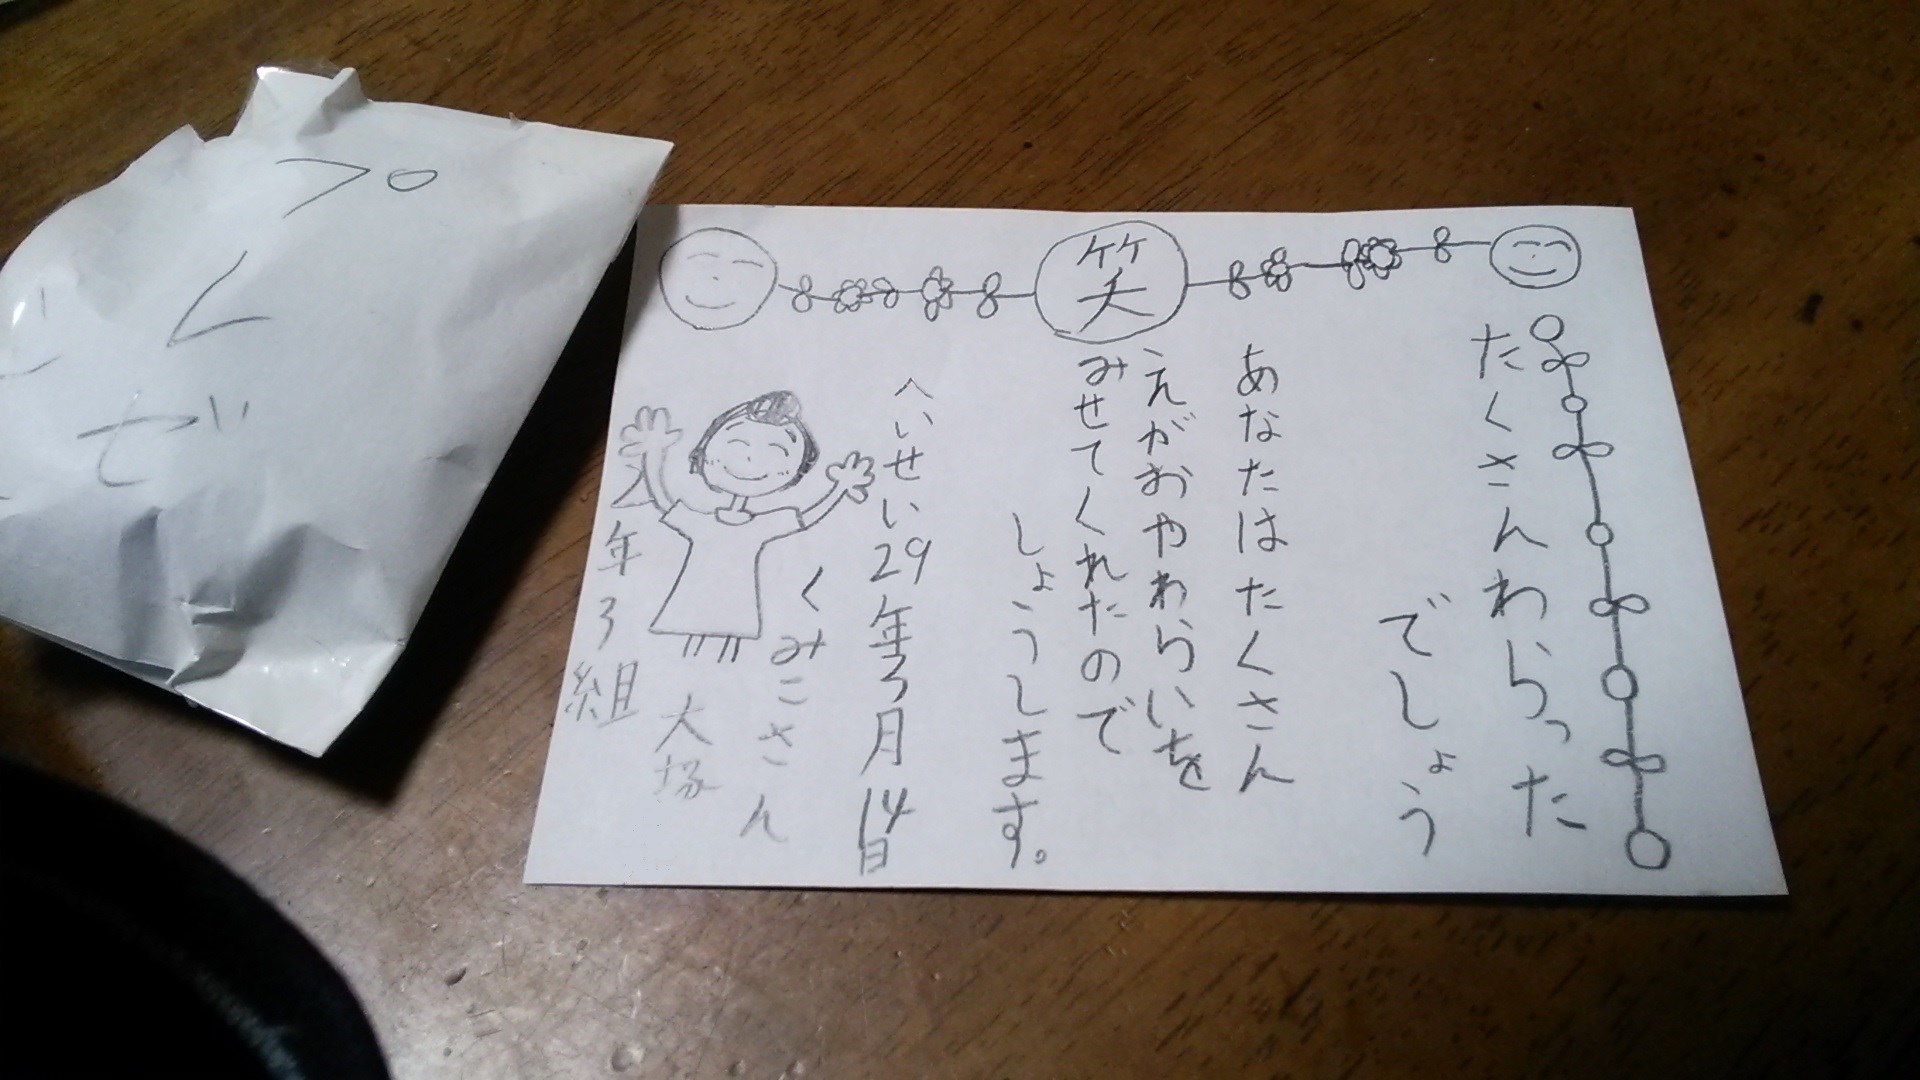 笑
たくさんわらった
でしょう
あなたはたくさん
えがおやわらいを
みせてくれたので
しょうします。
へいせい29年3月14日
くみこさん
大塚
2年3組
プ
レ
ゼ